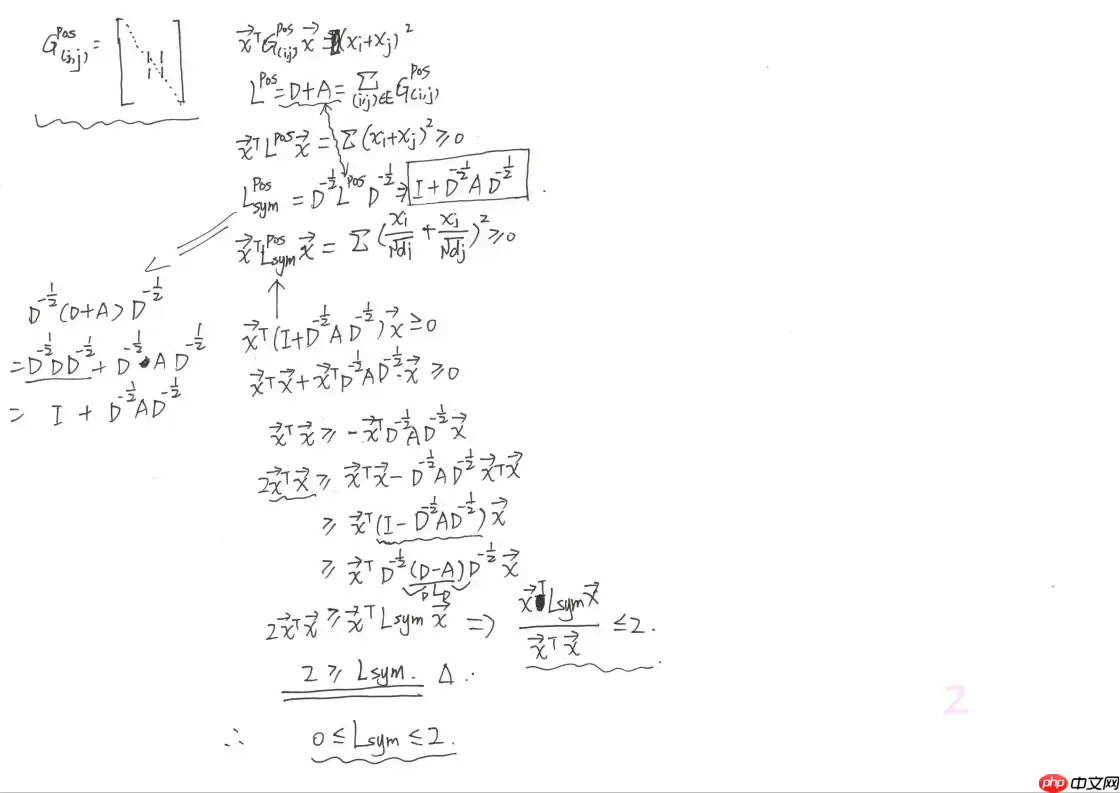 G^{pos}_{(i,j)} = [ ]
x⃗^T G^{pos}_{(i,j)} x⃗ = (x_i+x_j)^2
L^{pos} = D+A = Σ_{(i,j)∈E} G^{pos}_{(i,j)}
x⃗^T L^{pos} x⃗ = Σ(x_i+x_j)^2 ≥ 0
L^{pos}_{sym} = D^{-1/2} L^{pos} D^{-1/2} ⇒ I + D^{-1/2} A D^{-1/2}
x⃗^T L^{pos}_{sym} x⃗ = Σ (x_i/√d_i + x_j/√d_j)^2 ≥ 0
D^{-1/2}(D+A)D^{-1/2}
= D^{-1/2} D D^{-1/2} + D^{-1/2} A D^{-1/2}
= I + D^{-1/2} A D^{-1/2}
x⃗^T (I + D^{-1/2} A D^{-1/2}) x⃗ ≥ 0
x⃗^T x⃗ + x⃗^T D^{-1/2} A D^{-1/2} · x⃗ ≥ 0
x⃗^T x⃗ ≥ - x⃗^T D^{-1/2} A D^{-1/2} x⃗
2x⃗^T x⃗ ≥ x⃗^T x⃗ - D^{-1/2} A D^{-1/2} x⃗^T x⃗
≥ x⃗^T (I - D^{-1/2} A D^{-1/2}) x⃗
≥ x⃗^T D^{-1/2} (D-A) D^{-1/2} x⃗
2x⃗^T x⃗ ≥ x⃗^T L_{sym} x⃗ ⇒ x⃗^T L_{sym} x⃗ / x⃗^T x⃗ ≤ 2.
2 ≥ L_{sym}. Δ.
∴ 0 ≤ L_{sym} ≤ 2.
2
php 中文网